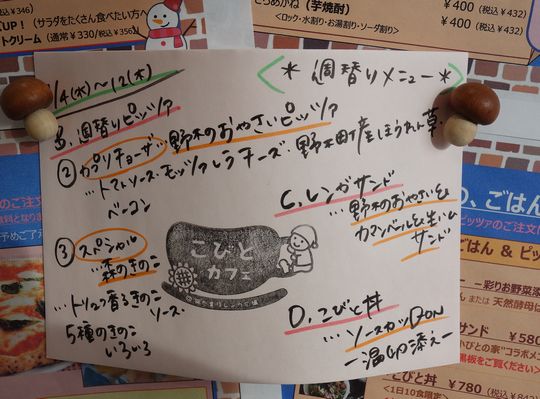 ¥346 (税込¥346)
UP! (サラダをたくさん食べたい方へ
トクリーム (通常¥330/税込¥356)
(芋焼酎)
<ロック・水割り・お湯割り・ソーダ割り>
¥400 (税込¥432)
¥400 (税込¥432)
1/4(水)〜12(木)
＊週替りメニュー＊
B.週替りピッツァ
②カプリチョーザ…野木のおやさいピッツァ
…トマトソース・モッツァレラチーズ・野木町産ほうれん草・
ベーコン
③スペシャル
…森のきのこ
…トリュフ香るきのこ
ソース・
5種のきのこ
いろいろ
C.レンガサンド
…野木のおやさいと
カマンベール&生ハム
サンド
こびと
カフェ
D.こびと丼
…ソースカツDON
ー温卵添えー
D、ごはん
ピッツァのご注文
ごはん & ピッ
彩りお野菜添
または 天然酵母
サンド ¥580
びとの家"コラボメニ
黒板をご覧ください>
こびと丼 ¥780 (税込¥842)
<1日10食限定>
のご注文